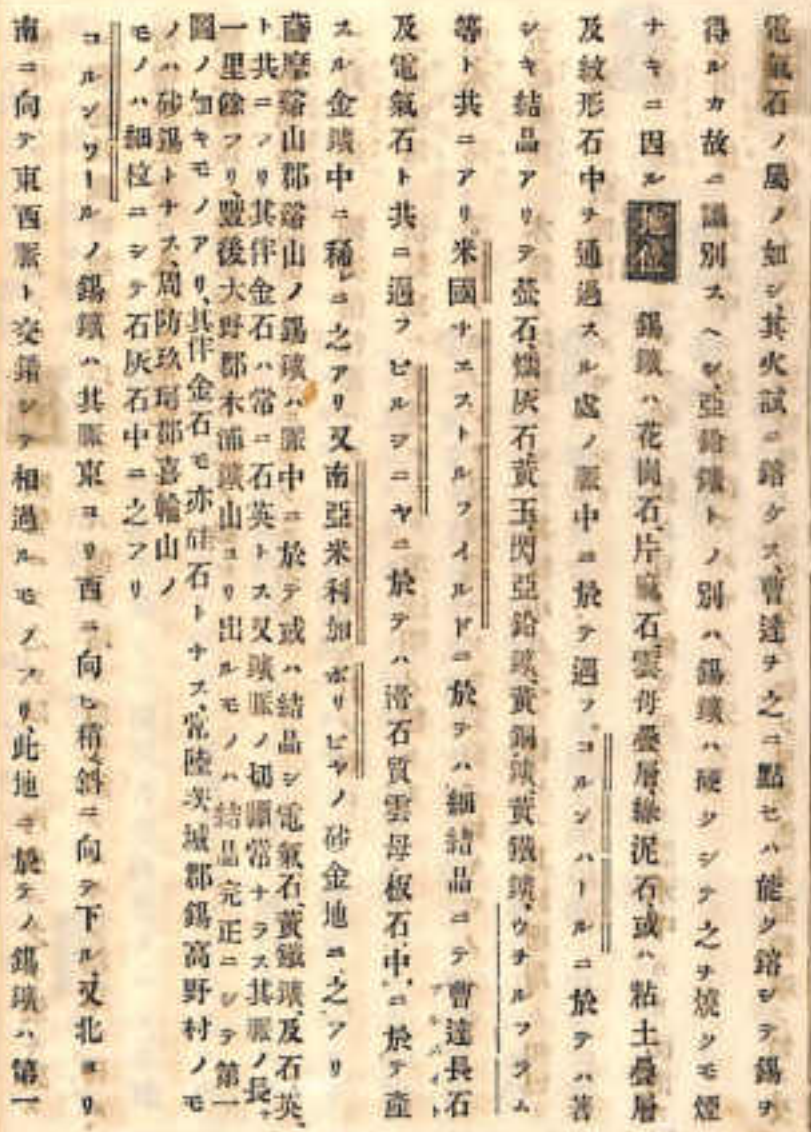 電氣石ノ屬ノ如シ、其火試ニ鎔ケス、曹達ヲ之ニ點セハ能ク鎔シテ錫ヲ
得ルカ故ニ識別スヘシ、亞鉛鑛トノ別ハ錫鑛ハ硬クシテ之ヲ燒クモ煙
ナキニ因ル 地位 錫鑛ハ花崗石、片麻石、雲母疊層、綠泥石、或ハ粘土疊層
及紋形石中ヲ通過スル處ノ脈中ニ於テ遇フ。コルンハールニ於テハ著
シキ結晶アリテ螢石、燐灰石、黃玉、閃亞鉛鑛、黃銅鑛、黃鐵鑛、ウヲルフラム
等ト共ニアリ。米國ナエストルフイルドニ於テハ細結晶ニテ曹達長石
及電氣石ト共ニ遇フ ビルジニヤニ於テハ滑石質雲母板石中ニ於テ產
スル金鑛中ニ稀ニ之アリ 又南亞米利加ボリビヤノ砂金地ニ之アリ
薩摩谿山郡谿山ノ錫鑛ハ脈中ニ於テ或ハ結晶シ電氣石、黃鐵鑛、及石英、
ト共ニアリ其伴金石ハ常ニ石英トス又鑛脈ノ切斷常ナラス其脈ノ長、
一里餘アリ、豐後大野郡木浦鑛山ヨリ出ルモノハ結晶完正ニシテ第一
圖ノ如キモノアリ、其伴金石モ亦硅石トナス、常陸茨城郡錫高野村ノモ
ノハ砂錫トナス、周防玖珂郡喜輪山ノ
モノハ細粒ニシテ石灰石中ニ之アリ
コルンワールノ錫鑛ハ其脈東ヨリ西ニ向ヒ稍斜ニ向テ下ル、又北ヨリ
南ニ向テ東西脈ト交錯シテ相過ルモノアリ、此地ニ於テノ錫鑛ハ第一